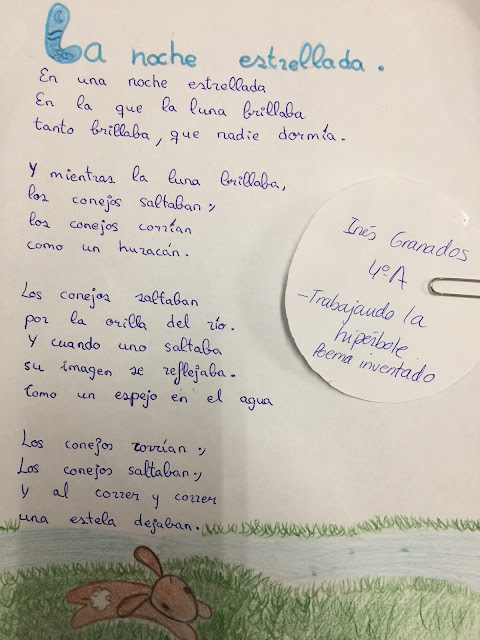 La noche estrellada.
En una noche estrellada
En la que la luna brillaba
tanto brillaba, que nadie dormía.
Y mientras la luna brillaba,
los conejos saltaban;
los conejos corrían
como un huracán.
Los conejos saltaban
por la orilla del río.
Y cuando uno saltaba
su imagen se reflejaba.
Como un espejo en el agua
Los conejos corrían;
Los conejos saltaban;
y al correr y correr
una estela dejaban.
Inés Granados
4ºA
-Trabajando la
hipérbole.
Poema inventado